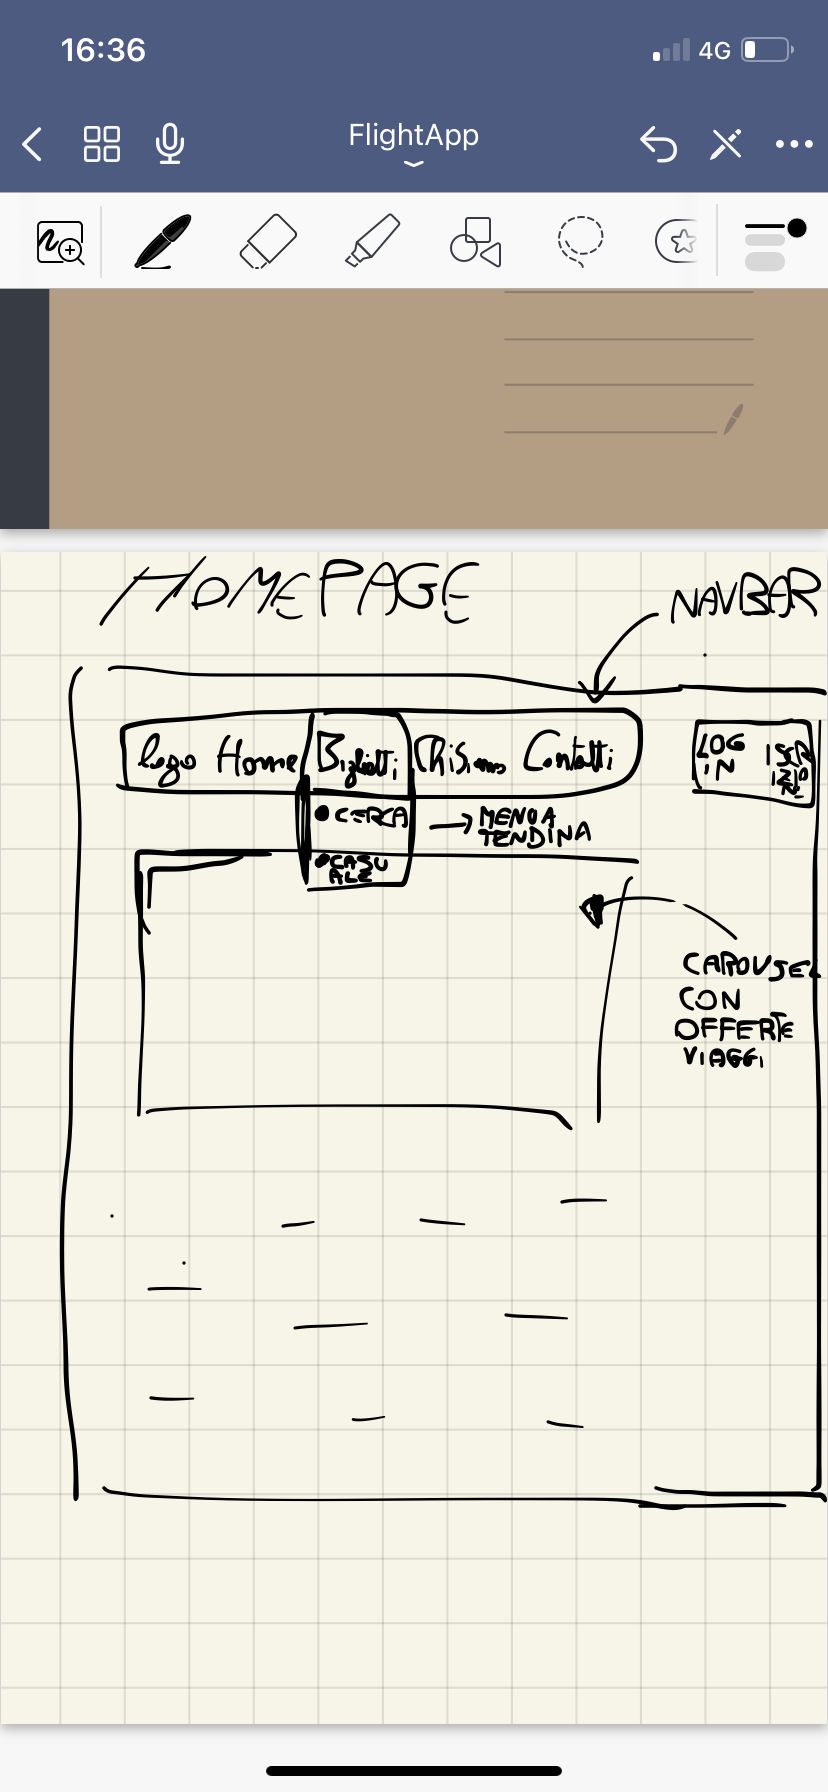 16:36
4G
FlightApp
HOMEPAGE
NAVBAR
Logo Home Biglietti Chi Siamo Contatti
LOG IN
CERCA
MENU A
TENDINA
CASU
ALE
CAROUSEL
CON
OFFERTE
VIAGGI